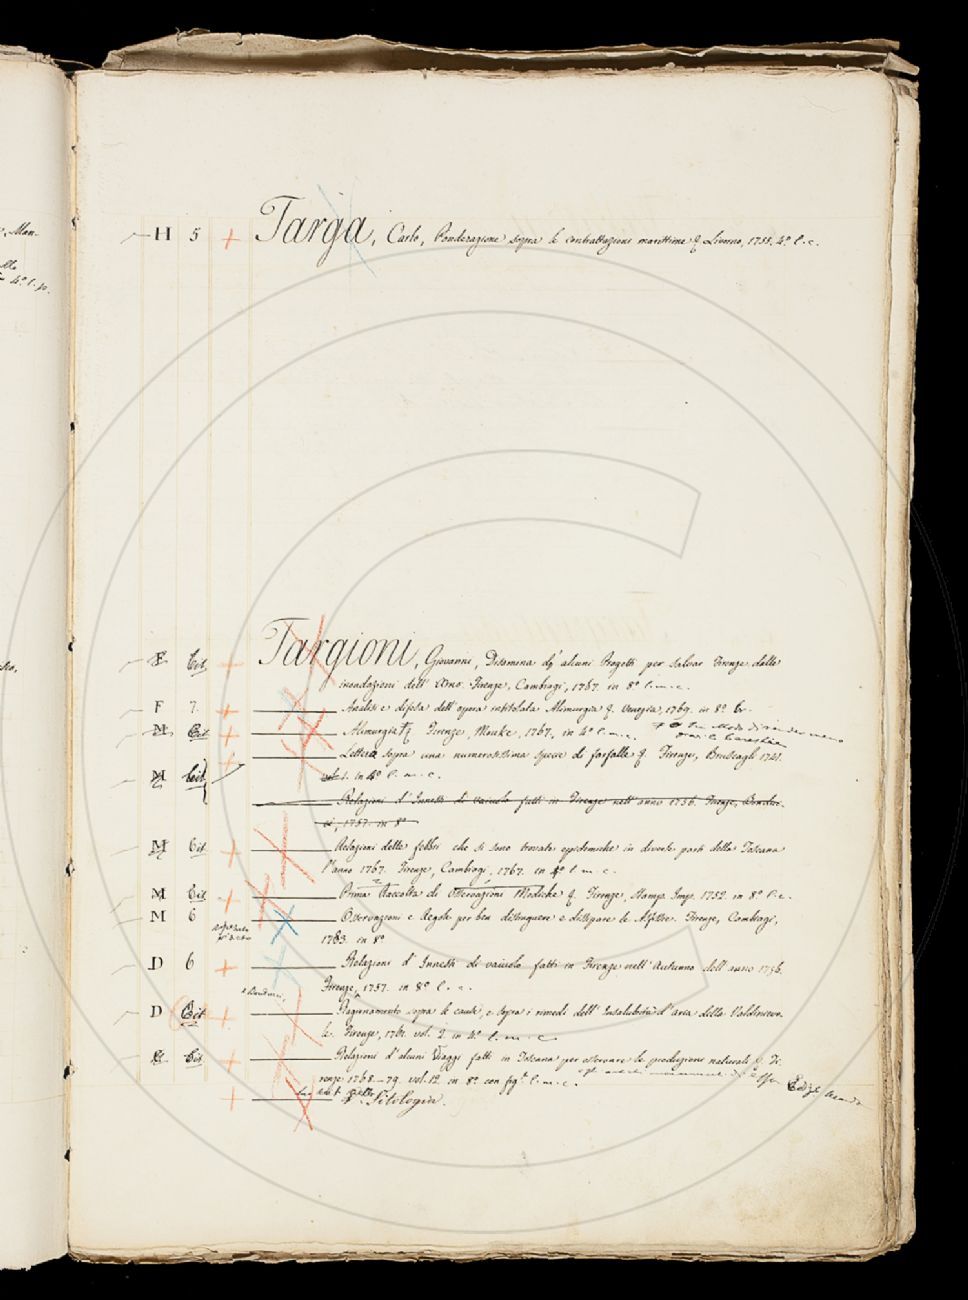 Man-
4º l. p.
H 5 + Targa, Carlo, Ponderazione sopra le contrattazione marittime Livorno, 1755. 4º l. c.
F Cit Targioni, Giovanni, Disamina d' alcuni Progetti per salvar Firenze dalle
inondazioni dell' Arno. Firenze, Cambiagi, 1767. in 8º l. m. c.
F 7. + Analisi e difesa dell' opera intitolata Alimurgia Venezia, 1769. in 8º br.
M Cit + Alimurgia Firenze, Mouke, 1767. in 4º l. m. c.
+ Lettera sopra una numerosissima specie di farfalle Firenze, Bruscagli 1741.
M Cit vol. 1. in 4º l. m. c.
Relazioni d' Innesti di vaiuolo fatti in Firenze nell' anno 1756. Firenze, Bonduc-
ci, 1757. in 8º
M Cit + Relazioni delle febbri che si sono trovate epidemiche in diverse parti della Toscana
l' anno 1767. Firenze, Cambiagi, 1767. in 4º l. m. c.
M Cit + Prima Raccolta di Osservazioni Mediche Firenze, Stamp. Imp. 1752. in 8º l. c.
M 6 Osservazioni e Regole per ben distinguere e
Firenze, Cambiagi,
1783. in 8º
D 6 + Relazioni d' Innesti di vaiuolo fatti in Firenze nell' Autunno dell' anno 1756.
Firenze, 1757. in 8º l. c.
Bonducci,
D Cit + Ragionamento sopra le cause, e sopra i rimedi dell' Insalubrità d' aria della Valdinievo-
le. Firenze, 1761. vol. 2. in 4º l. m. c.
Cit + Relazioni d' alcuni Viaggi fatti in Toscana per osservare le produzioni naturali Fi-
renze 1768-79. vol. 12. in 8º con fig. l. m. c.
+ Fitologia.